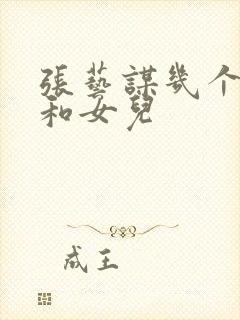 張藝謀幾个
和女兒
成王